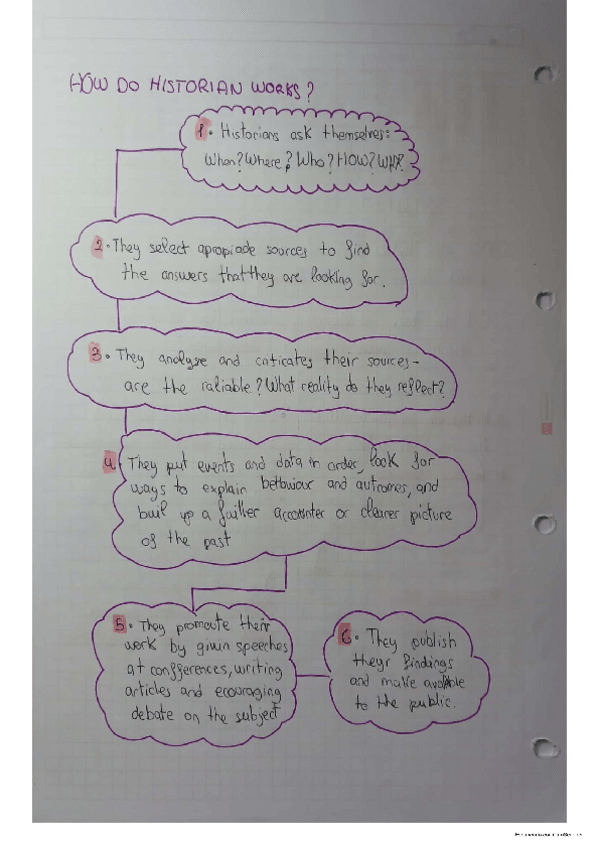 HOW DO HISTORIAN WORKS?
1. Historians ask themselves:
When? Where? Who? HOW? WHY?
2. They select apropiade sources to find
the answers that they are looking for.
3. They analyse and criticates their sources-
are the raliable? What reality do they reflect?
4. They put events and data in order, look for
ways to explain behaviour and autcomes, and
buil up a fuller accounter or clearer picture
of the past
5. They promoute their
work by givin speeches
at confferences, writing
articles and ecouraging
debate on the subject
6. They publish
theyr findings
and make avaible
to the public.